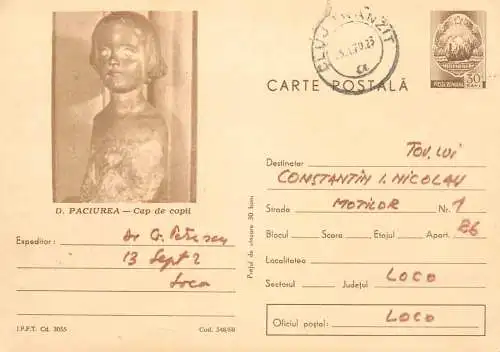 CLUJ TRANZIT
CARTE POSTALĂ
POSTA ROMANA
30
BANI
D. PACIUREA — Cap de copil
Expeditor: Dr G.
13 Sept 2
Loco
I.P.F.T. Cd. 3055
Cod. 548/68
Prețul de vînzare 30 bani
TOV. LUI
Destinatar
CONSTANTIN I. NICOLAU
Strada MOȚILOR Nr. 1
Blocul Scara Etajul Apart. E6
Localitatea
Sectorul Județul LOCO
Oficiul poștal: LOCO